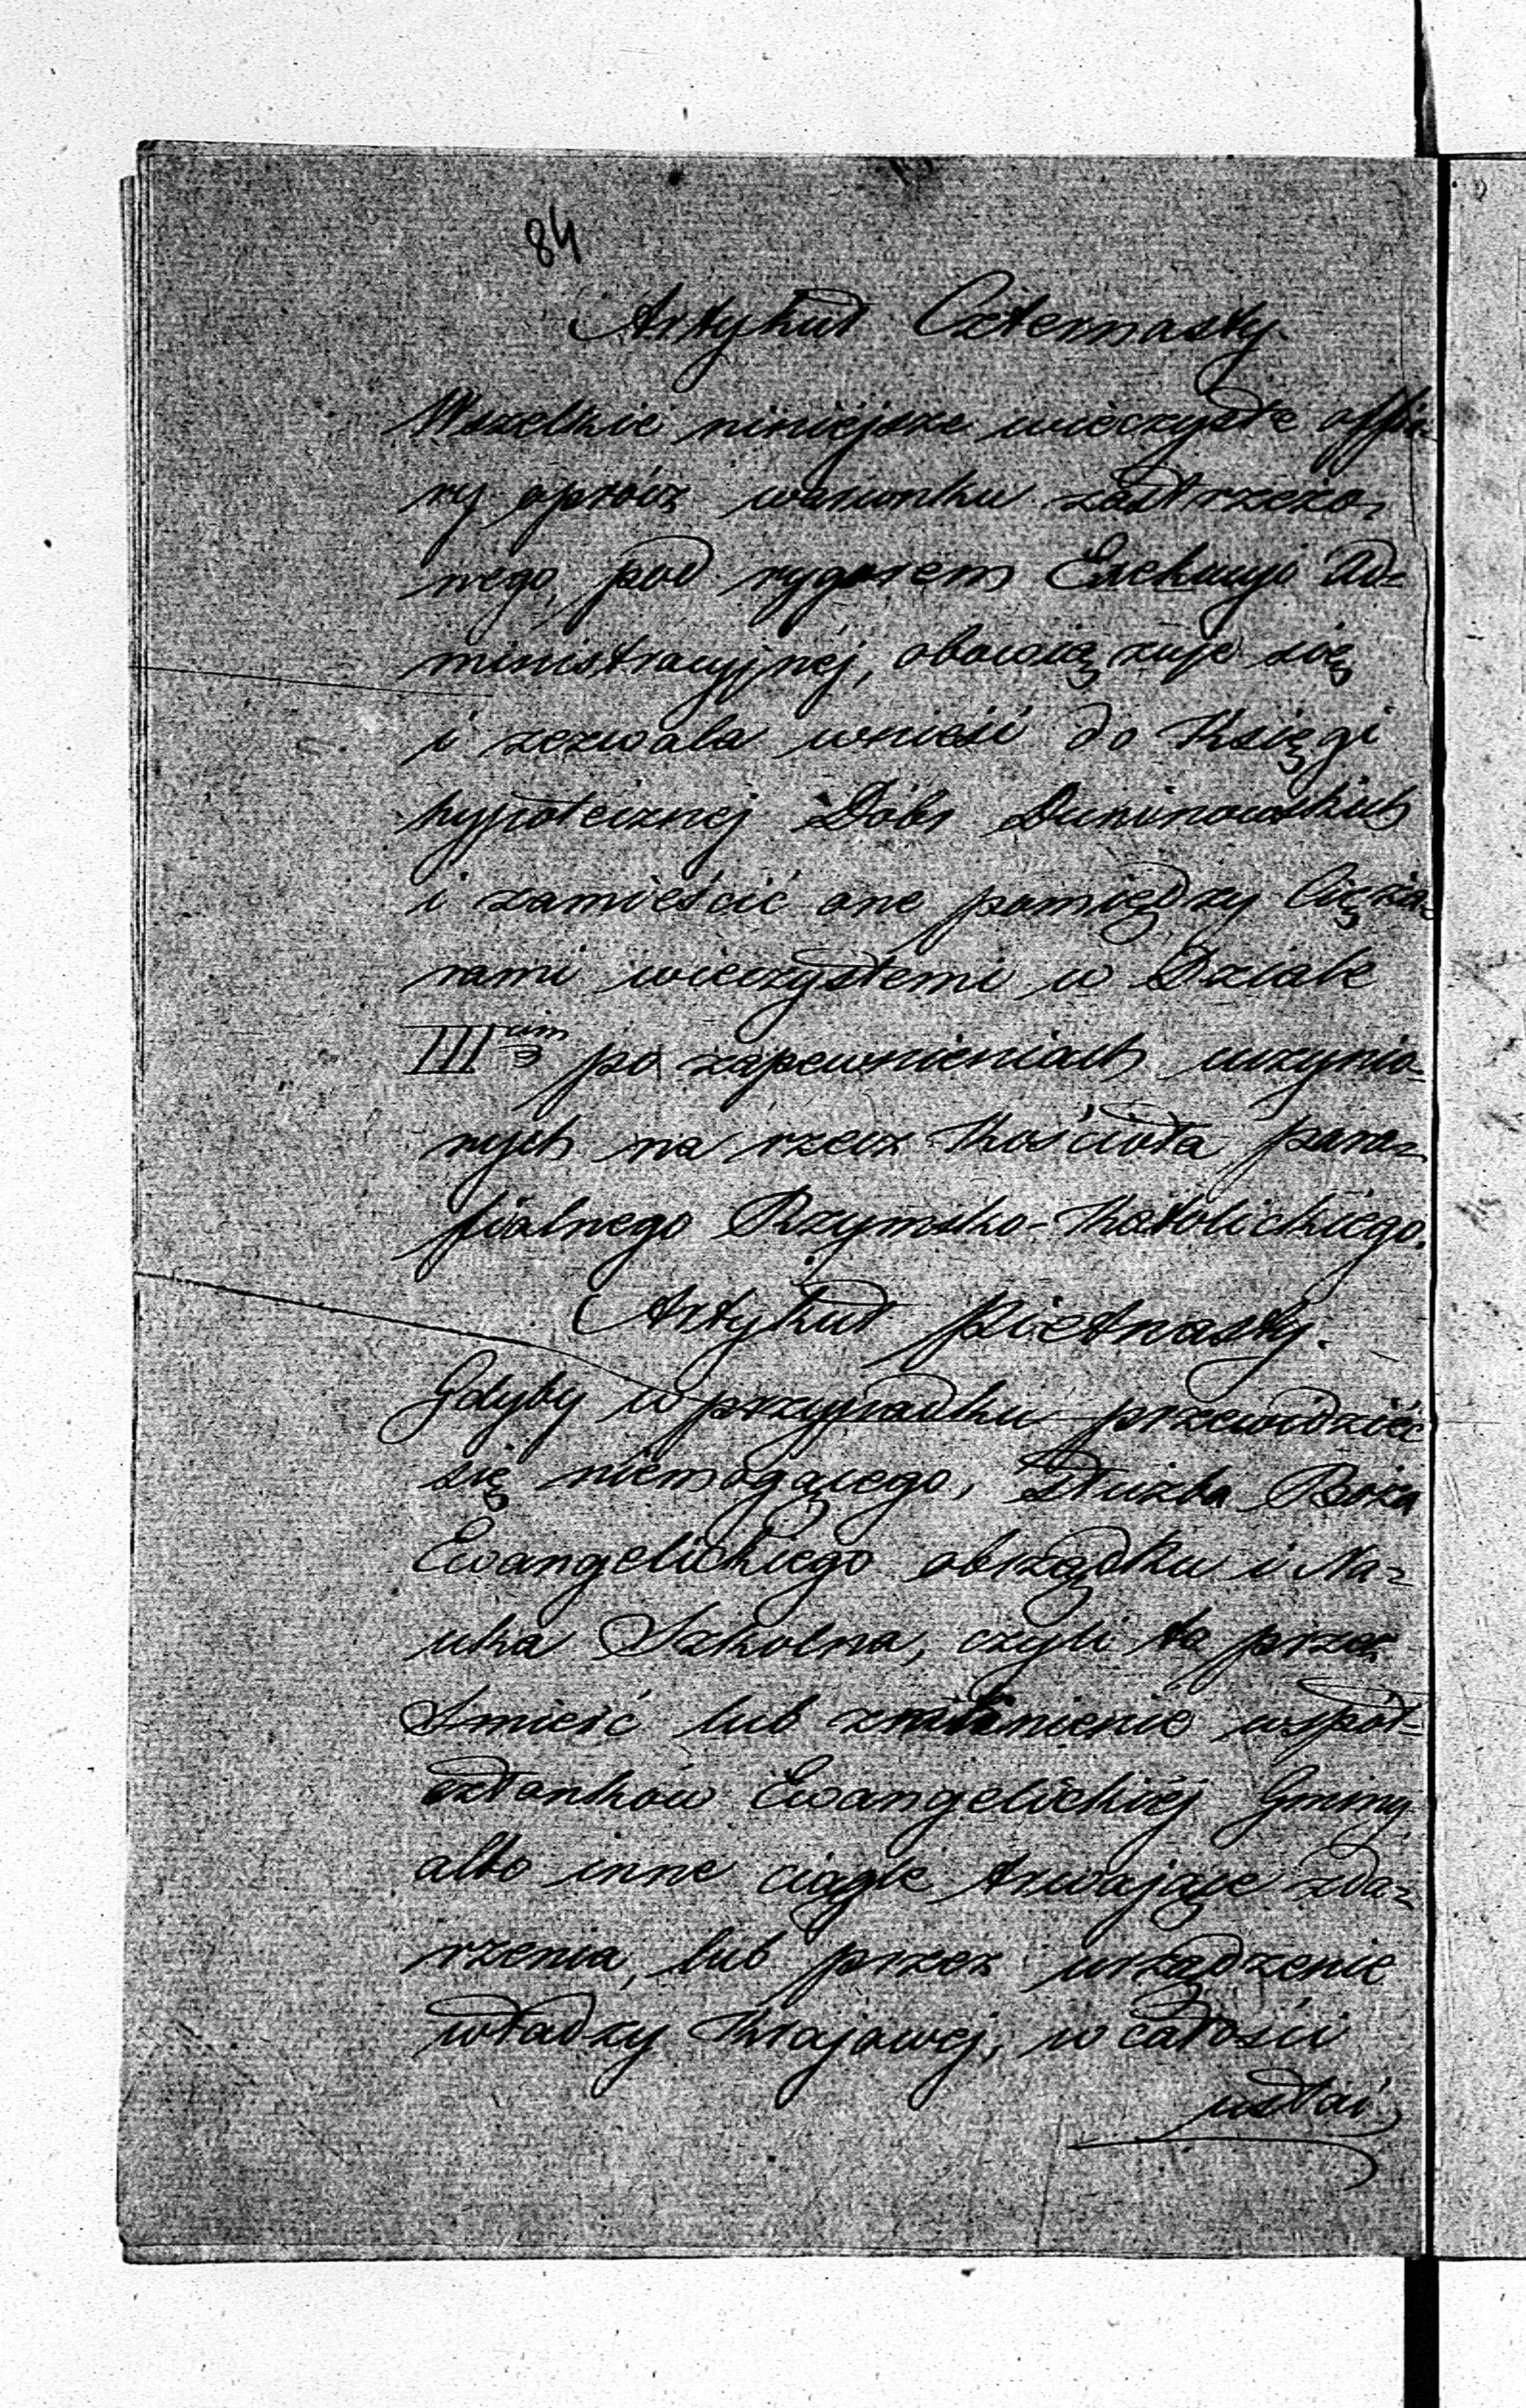 84
Artykuł Czternasty.
Wszelkie niniejsze wieczyste offia-
ry oprócz warunku zastrzeżo-
nego, pod rygorem Exekucyi Ad-
ministracyjnéj, obowiązuje się
i zezwala wnieść do Księgi
hypotecznej Dóbr Duninowskich
i zamieścić one pomiędzy Cięża-
rami wieczystemi w Dziale
IIIcim po zapewnieniach uczynio-
nych na rzecz Kościoła para-
fialnego Rzymsko-Katolickiego.
Artykuł piętnasty.
Gdyby w przypadku przewidzieć
się niemogącego, Służba Boża
Ewangelickiego obrządku i Na-
uka Szkolna, czyli to przez
Śmierć lub zmienienie współ-
członków Ewangelickiéj Gminy
albo inne ciągle trwające zda-
rzenia, lub przez urządzenie
władzy Krajowej, w całości
ustai